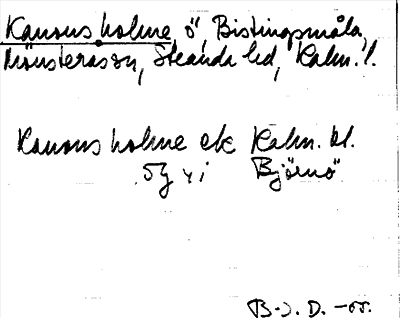 Kanons holme, ö, Bistingsmåla,
Mönsterås sn, Stranda hd, Kalm. l.
Kanons holme ek Kalm. bl.
5g
Björnö
B-J. D. -55.